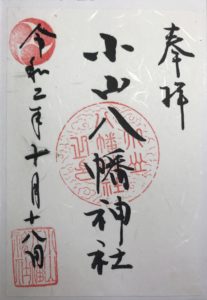 奉拝
小山八幡神社
令和二年十月十八日